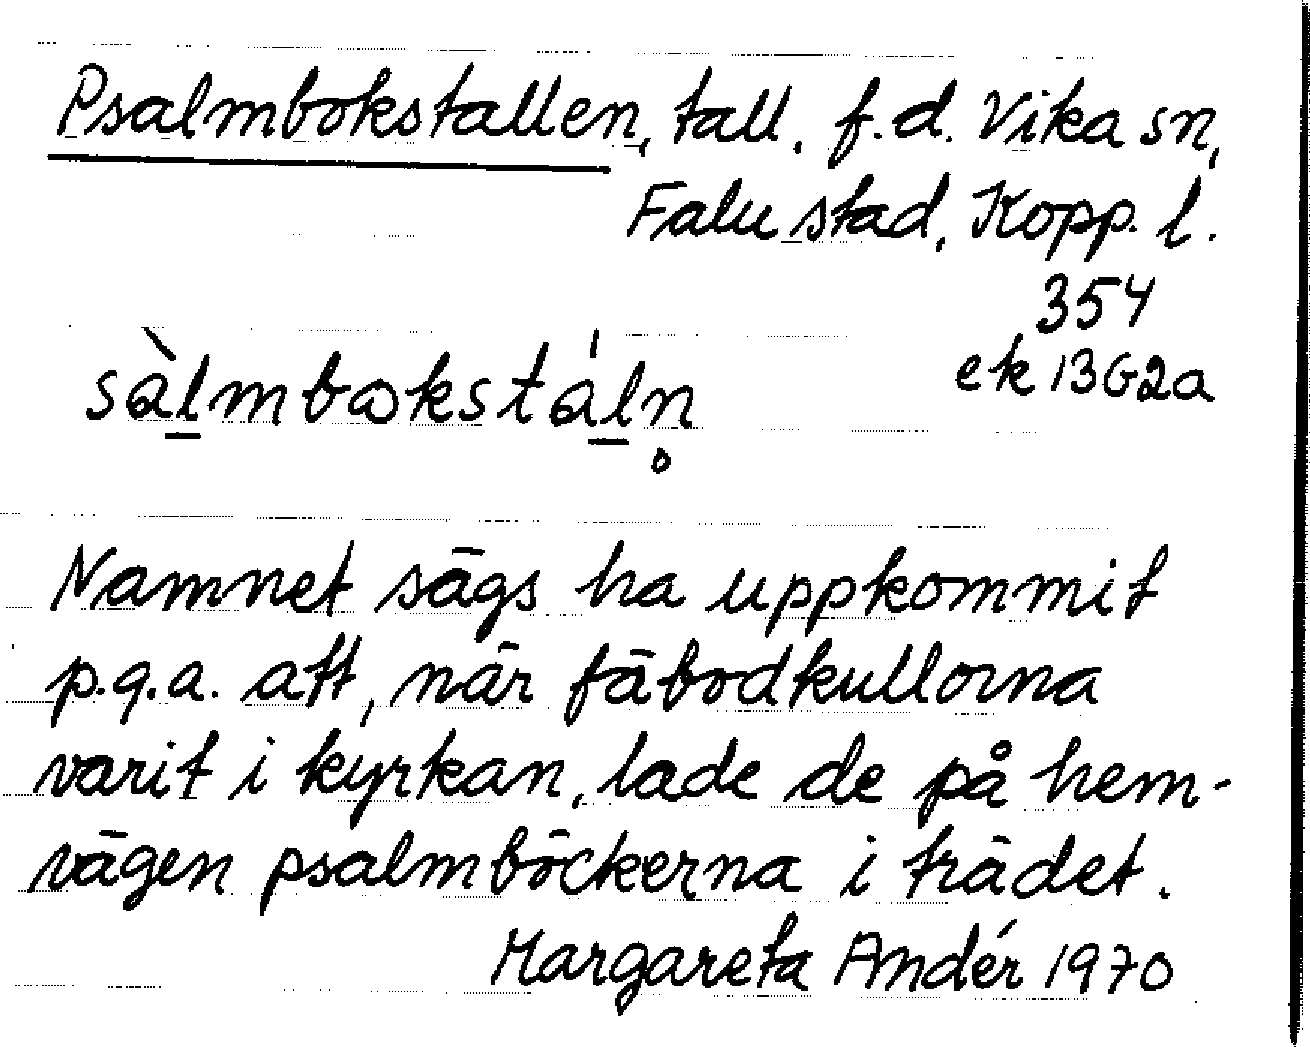 Psalmbokstallen, tall. f.d. Vika sn,
Falu stad, Kopp. l.
354
ek 13G2a
sàl̲mbωkstál̲n̥
Namnet sägs ha uppkommit
p.g.a. att, när fäbodkullorna
varit i kyrkan, lade de på hem-
vägen psalmböckerna i trädet.
Margareta Andér 1970